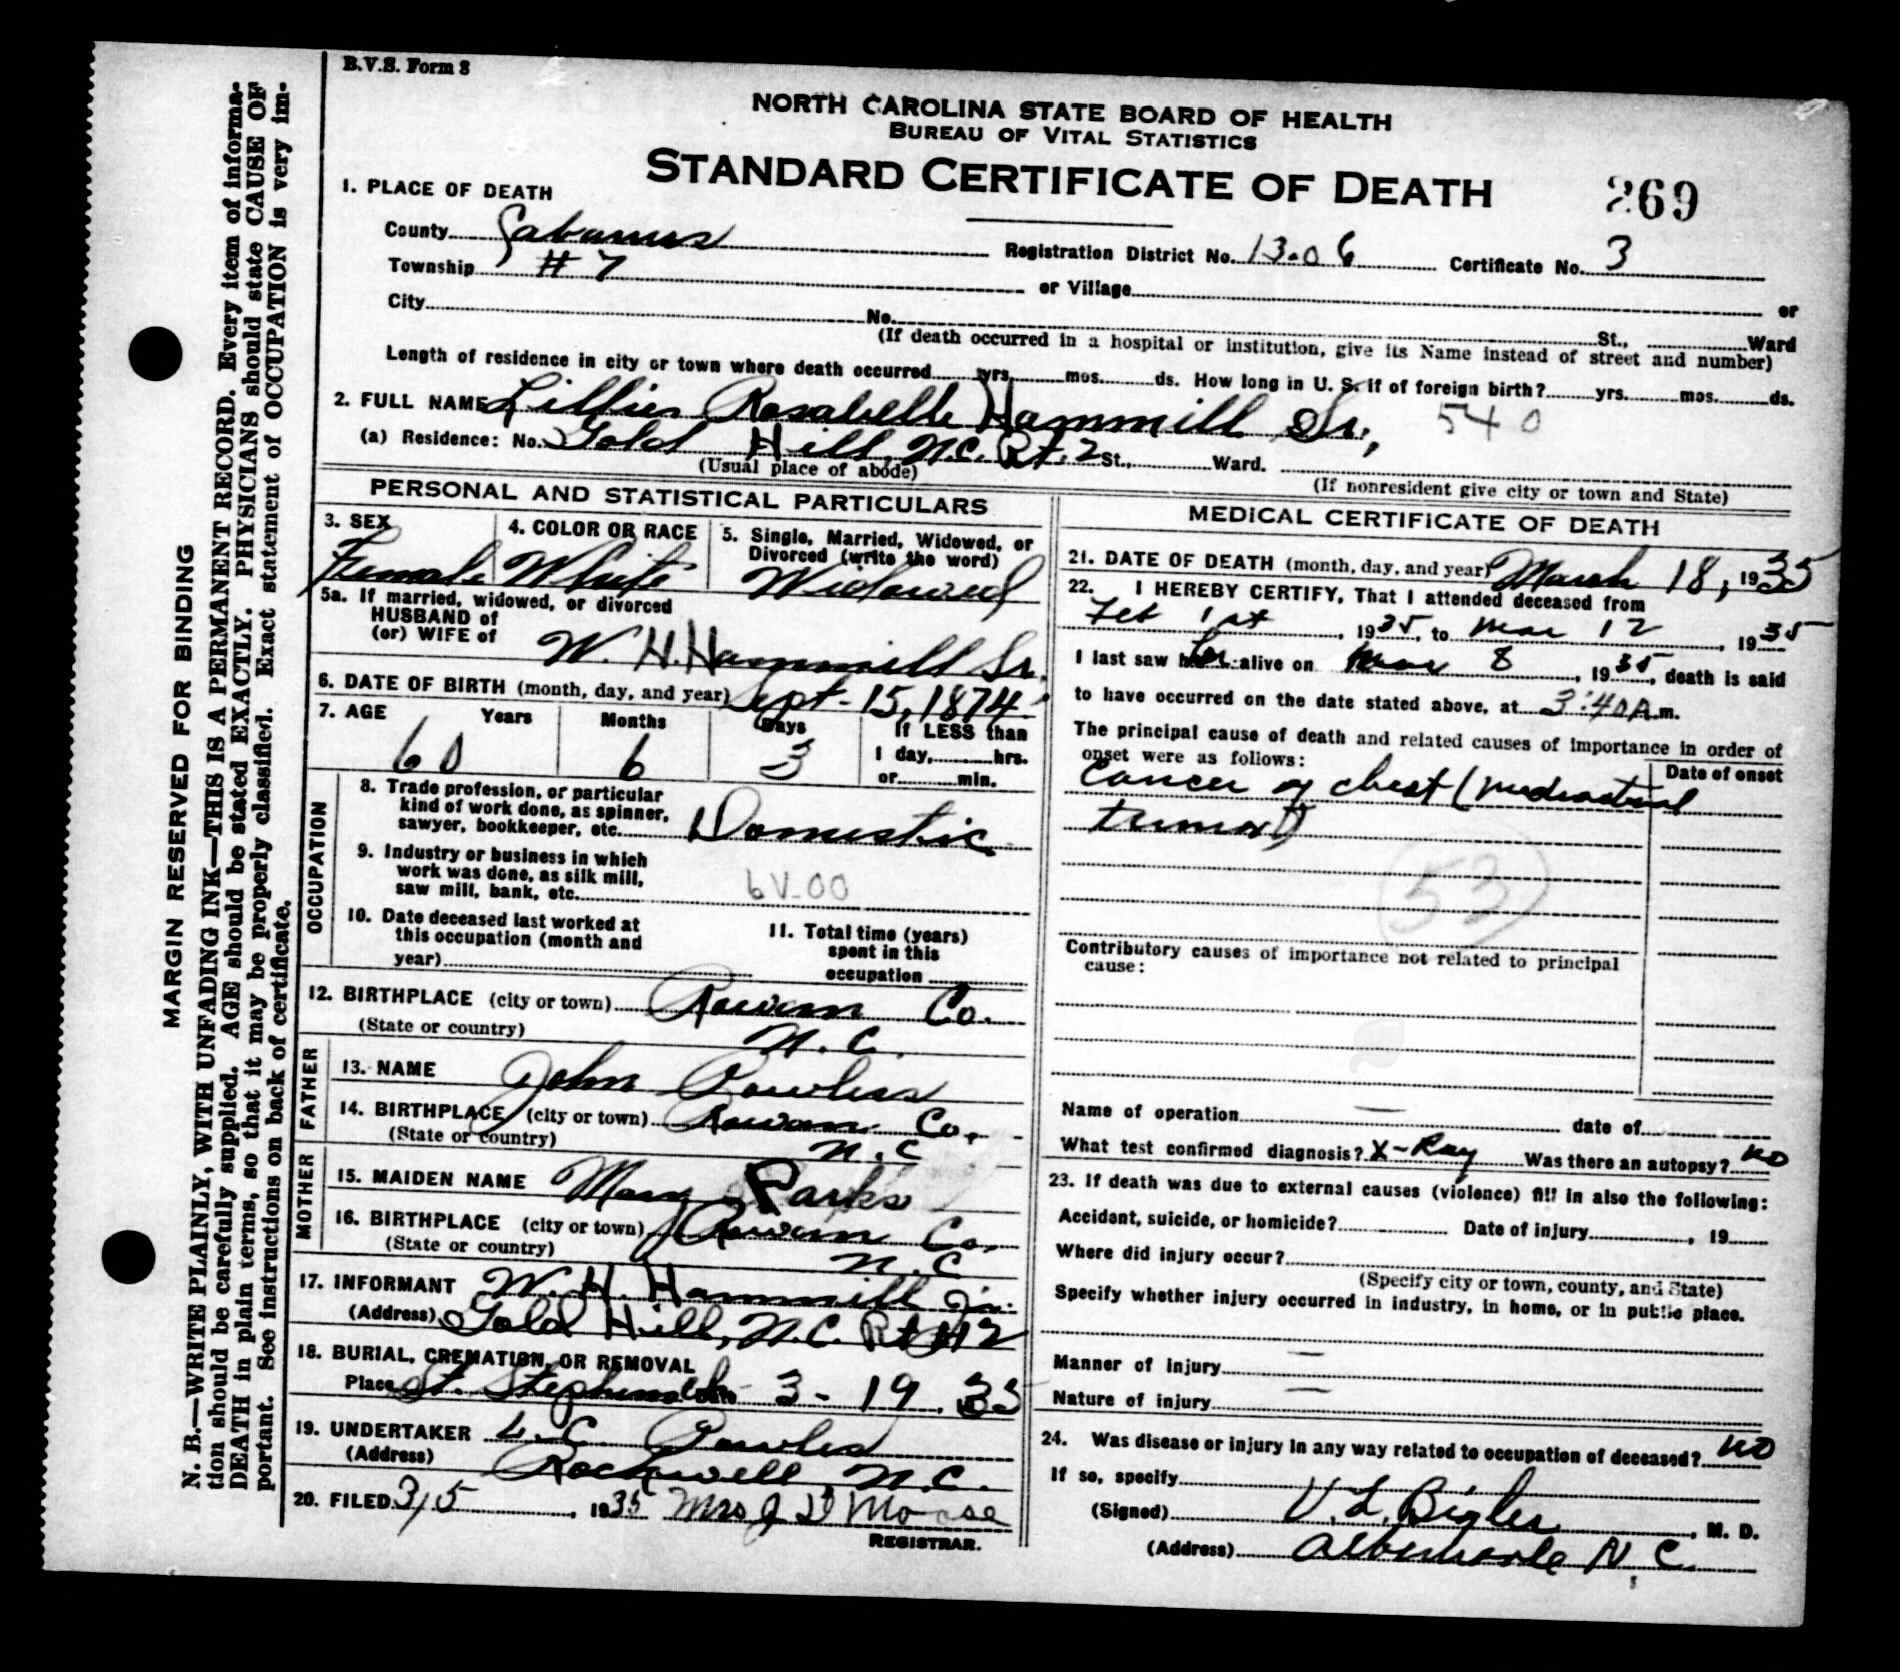 B.V.S. Form 8
NORTH CAROLINA STATE BOARD OF HEALTH
BUREAU OF VITAL STATISTICS
STANDARD CERTIFICATE OF DEATH
269
1. PLACE OF DEATH
County Cabarrus Registration District No. 13-06 Certificate No. 3
Township #7 or Village or
City No. St., Ward
(If death occurred in a hospital or institution, give its Name instead of street and number)
Length of residence in city or town where death occurred yrs. mos. ds. How long in U. S. if of foreign birth? yrs. mos. ds.
2. FULL NAME Lillie Rosabelle Hammill Sr., 540
(a) Residence: No. Gold Hill, N.C. Rt. 2 St., Ward.
(Usual place of abode) (If nonresident give city or town and State)
PERSONAL AND STATISTICAL PARTICULARS
3. SEX Female
4. COLOR OR RACE White
5. Single, Married, Widowed, or
Divorced (write the word)
Widowed
5a. If married, widowed, or divorced
HUSBAND of
(or) WIFE of W. H. Hammill Sr.
6. DATE OF BIRTH (month, day, and year) Sept-15, 1874
7. AGE Years Months Days If LESS than
60 6 3 1 day, hrs.
or min.
OCCUPATION
8. Trade profession, or particular
kind of work done, as spinner,
sawyer, bookkeeper, etc. Domestic
9. Industry or business in which
work was done, as silk mill,
saw mill, bank, etc. 6V-00
10. Date deceased last worked at
this occupation (month and
year)
11. Total time (years)
spent in this
occupation
12. BIRTHPLACE (city or town) Rowan Co.
(State or country) N.C.
FATHER
13. NAME John Powless
14. BIRTHPLACE (city or town) Rowan Co.
(State or country) N.C
MOTHER
15. MAIDEN NAME Mary Parks
16. BIRTHPLACE (city or town) Rowan Co.
(State or country) N.C
17. INFORMANT W. H. Hammill Jr.
(Address) Gold Hill, N.C. Rt #2
18. BURIAL, CREMATION, OR REMOVAL
Place St. Stephens 3-19, 35
19. UNDERTAKER L.C Powles
(Address) Rockwell, N.C.
20. FILED 3/5, 1935 Mrs J D Moose
REGISTRAR.
MEDICAL CERTIFICATE OF DEATH
21. DATE OF DEATH (month, day, and year) March 18, 1935
22. I HEREBY CERTIFY, That I attended deceased from
Feb 1st, 1935, to Mar 12, 1935
I last saw her alive on Mar 8, 1935, death is said
to have occurred on the date stated above, at 3:40 A.m.
The principal cause of death and related causes of importance in order of
onset were as follows:
Date of onset
Cancer of chest (Mediastinal
tumor)
53
Contributory causes of importance not related to principal
cause:
Name of operation — date of
What test confirmed diagnosis? X-Ray Was there an autopsy? no
23. If death was due to external causes (violence) fill in also the following:
Accident, suicide, or homicide? Date of injury, 19
Where did injury occur?
(Specify city or town, county, and State)
Specify whether injury occurred in industry, in home, or in public place.
Manner of injury —
Nature of injury —
24. Was disease or injury in any way related to occupation of deceased? no
If so, specify
(Signed) V. L. Bigler, M. D.
(Address) Albemarle N.C.
MARGIN RESERVED FOR BINDING
N. B.—WRITE PLAINLY, WITH UNFADING INK—THIS IS A PERMANENT RECORD. Every item of informa-
tion should be carefully supplied. AGE should be stated EXACTLY. PHYSICIANS should state CAUSE OF
DEATH in plain terms, so that it may be properly classified. Exact statement of OCCUPATION is very im-
portant. See instructions on back of certificate.